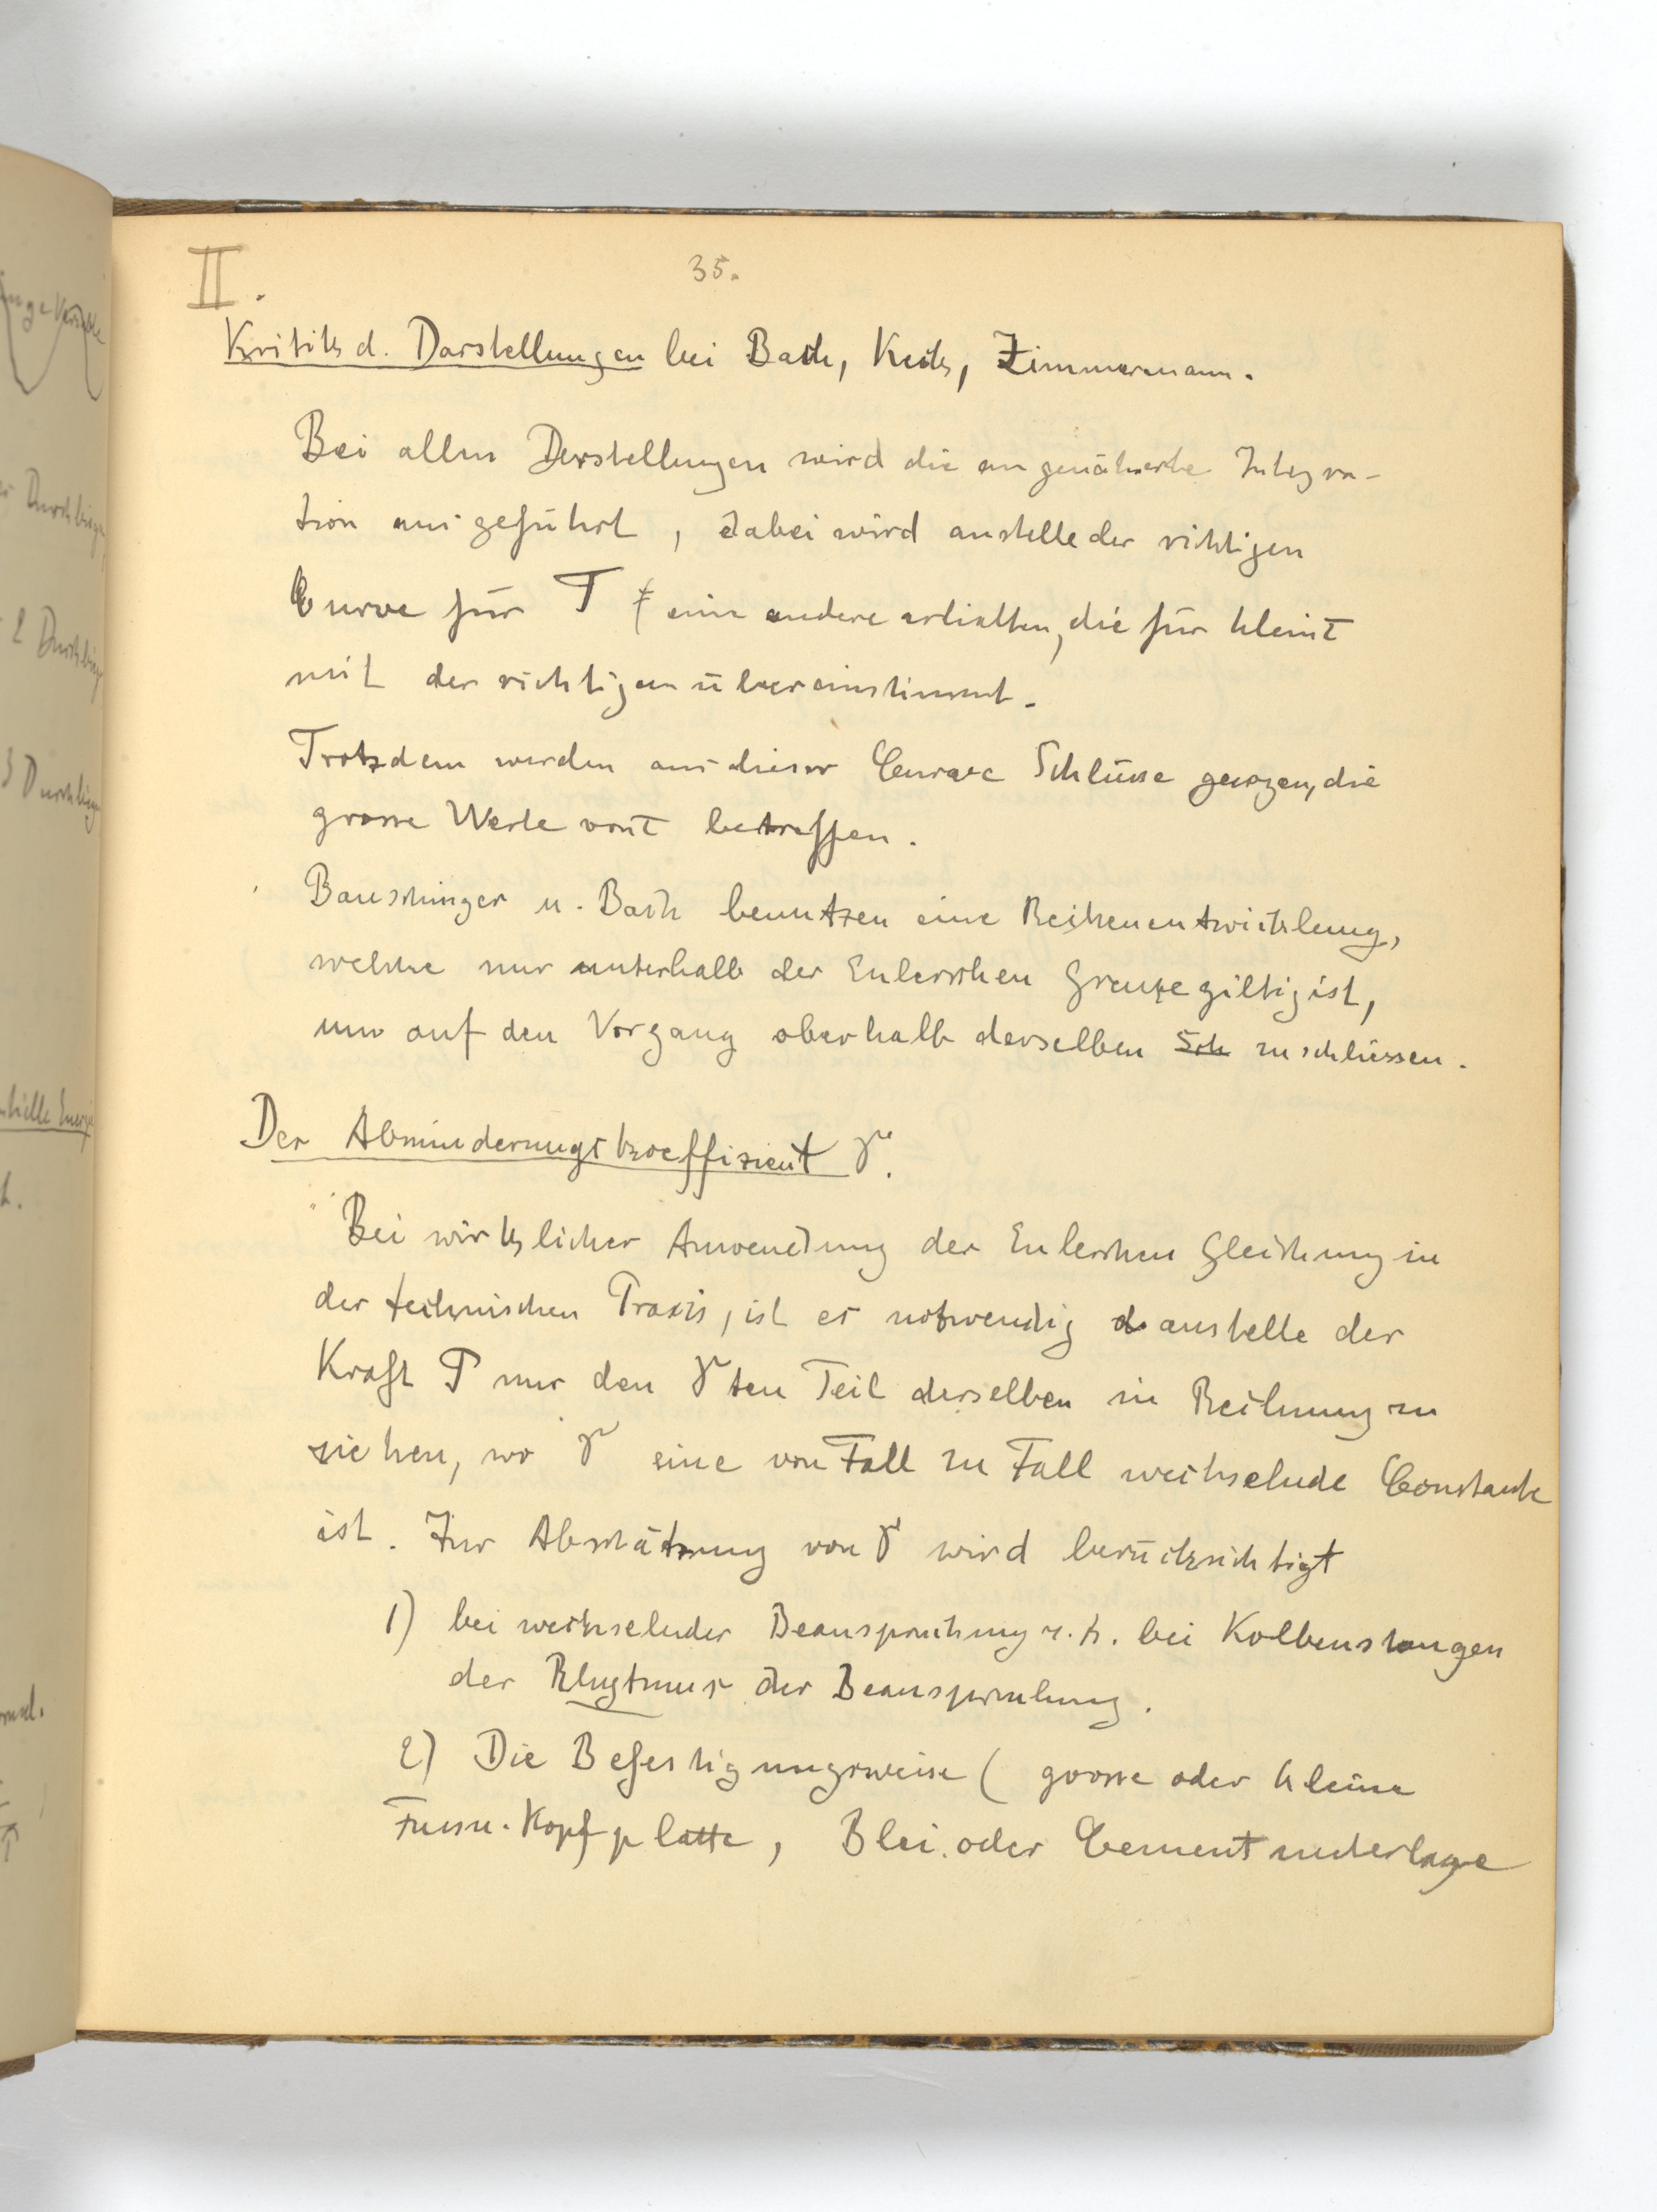 II.
35.
Kritik d. Darstellungen bei Bach, Keck, Zimmermann.
Bei allen Darstellungen wird die angenäherte Integra-
tion ausgeführt, dabei wird anstelle der richtigen
Curve für P eine andere erhalten, die für kleine τ
mit der richtigen übereinstimmt.
Trotzdem werden aus dieser Curve Schlüsse gezogen, die
grosse Werte von τ betreffen.
Bauschinger u. Bach benutzen eine Reihenentwicklung,
welche nur unterhalb der Eulerschen Grenze giltig ist,
um auf den Vorgang oberhalb derselben Sch zu schliessen.
Der Abminderungskoeffizient γ.
Bei wirklicher Anwendung der Eulerschen Gleichung in
der technischen Praxis, ist es notwendig anstelle der
Kraft P nur den γten Teil derselben in Rechnung zu
ziehen, wo γ eine von Fall zu Fall wechselnde Constante
ist. Zur Abschätzung von γ wird berücksichtigt
1) bei wechselnder Beanspruchung z. b. bei Kolbenstangen
der Rhytmus der Beanspruchung.
2) Die Befestigungsweise (grosse oder kleine
Fuss u. Kopfplatte, Blei oder Cementunterlage